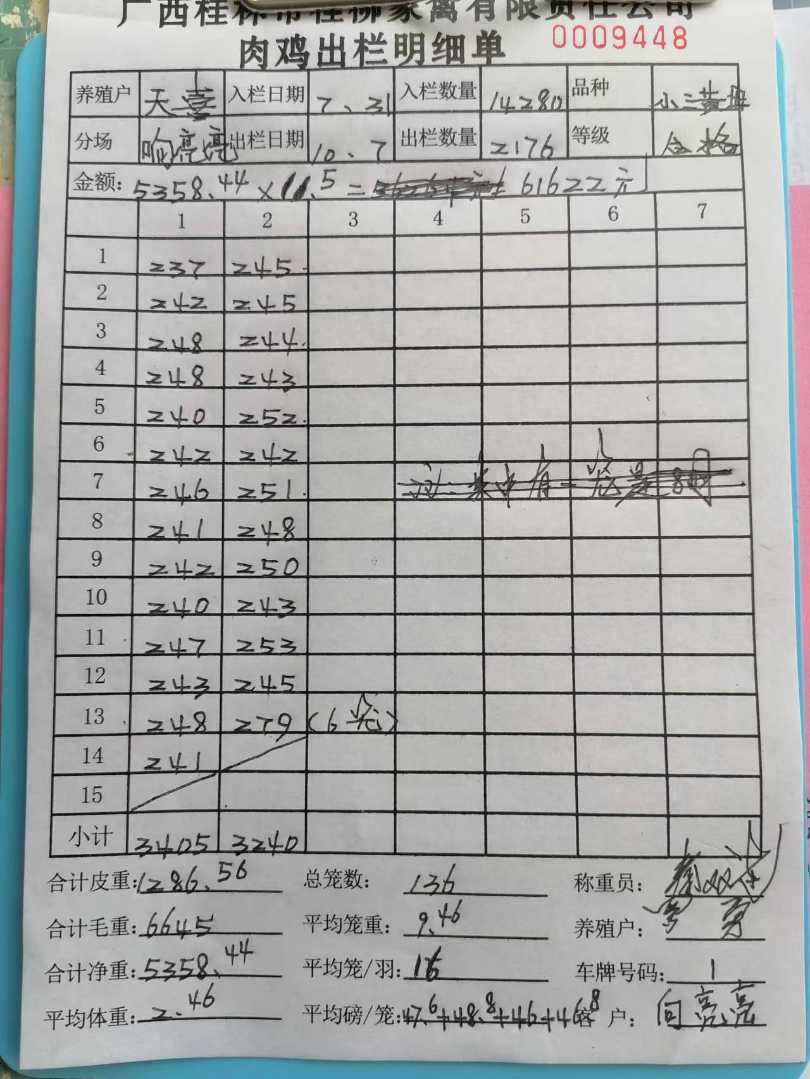 广西桂林市桂柳家禽有限责任公司
肉鸡出栏明细单 0009448
养殖户 天喜 入栏日期 7、31 入栏数量 14280 品种 小三黄母
分场 响亮亮 出栏日期 10、7 出栏数量 2176 等级 合格
金额: 5358.44×11.5= 61622元
1 2 3 4 5 6 7
1 237 245
2 242 245
3 248 244
4 248 243
5 240 252
6 242 242
7 246 251
8 241 248
9 242 250
10 240 243
11 247 253
12 243 245
13 248 279 (6笼)
14 241
15
小计 3405 3240
合计皮重: 1286.56 总笼数: 136 称重员:
合计毛重: 6645 平均笼重: 9.46 养殖户:
合计净重: 5358.44 平均笼/羽: 16 车牌号码: 1
平均体重: 2.46 平均磅/笼: 47.6+48.8+46+46.8 客户: 向亮亮